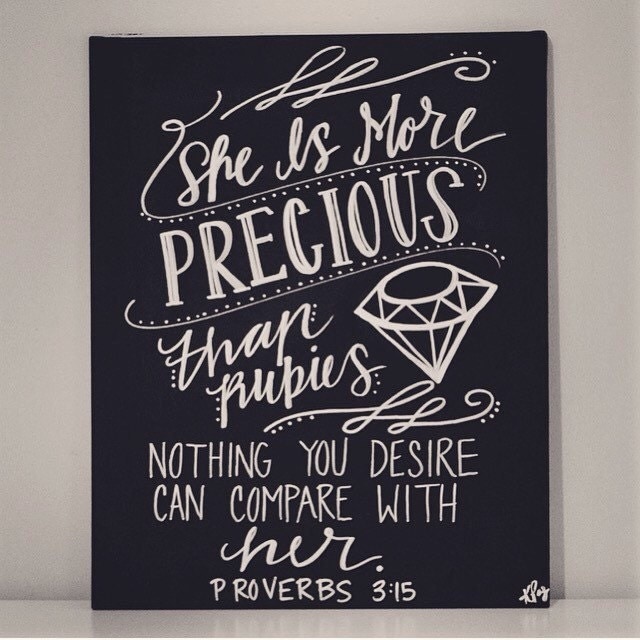 She Is More
PRECIOUS
than
rubies
NOTHING YOU DESIRE
CAN COMPARE WITH
her.
PROVERBS 3:15